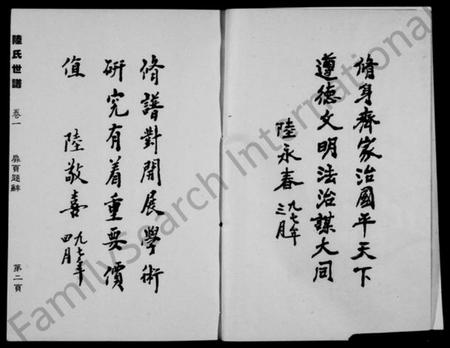 脩身齊家治國平天下
遵德文明法治謀大同
陸永春 九七年
三月
脩譜對開展學術
研究有着重要價
值 陸敬喜 九七年
四月
陸氏世譜 卷一 扉頁題辭 第二頁
FamilySearch International